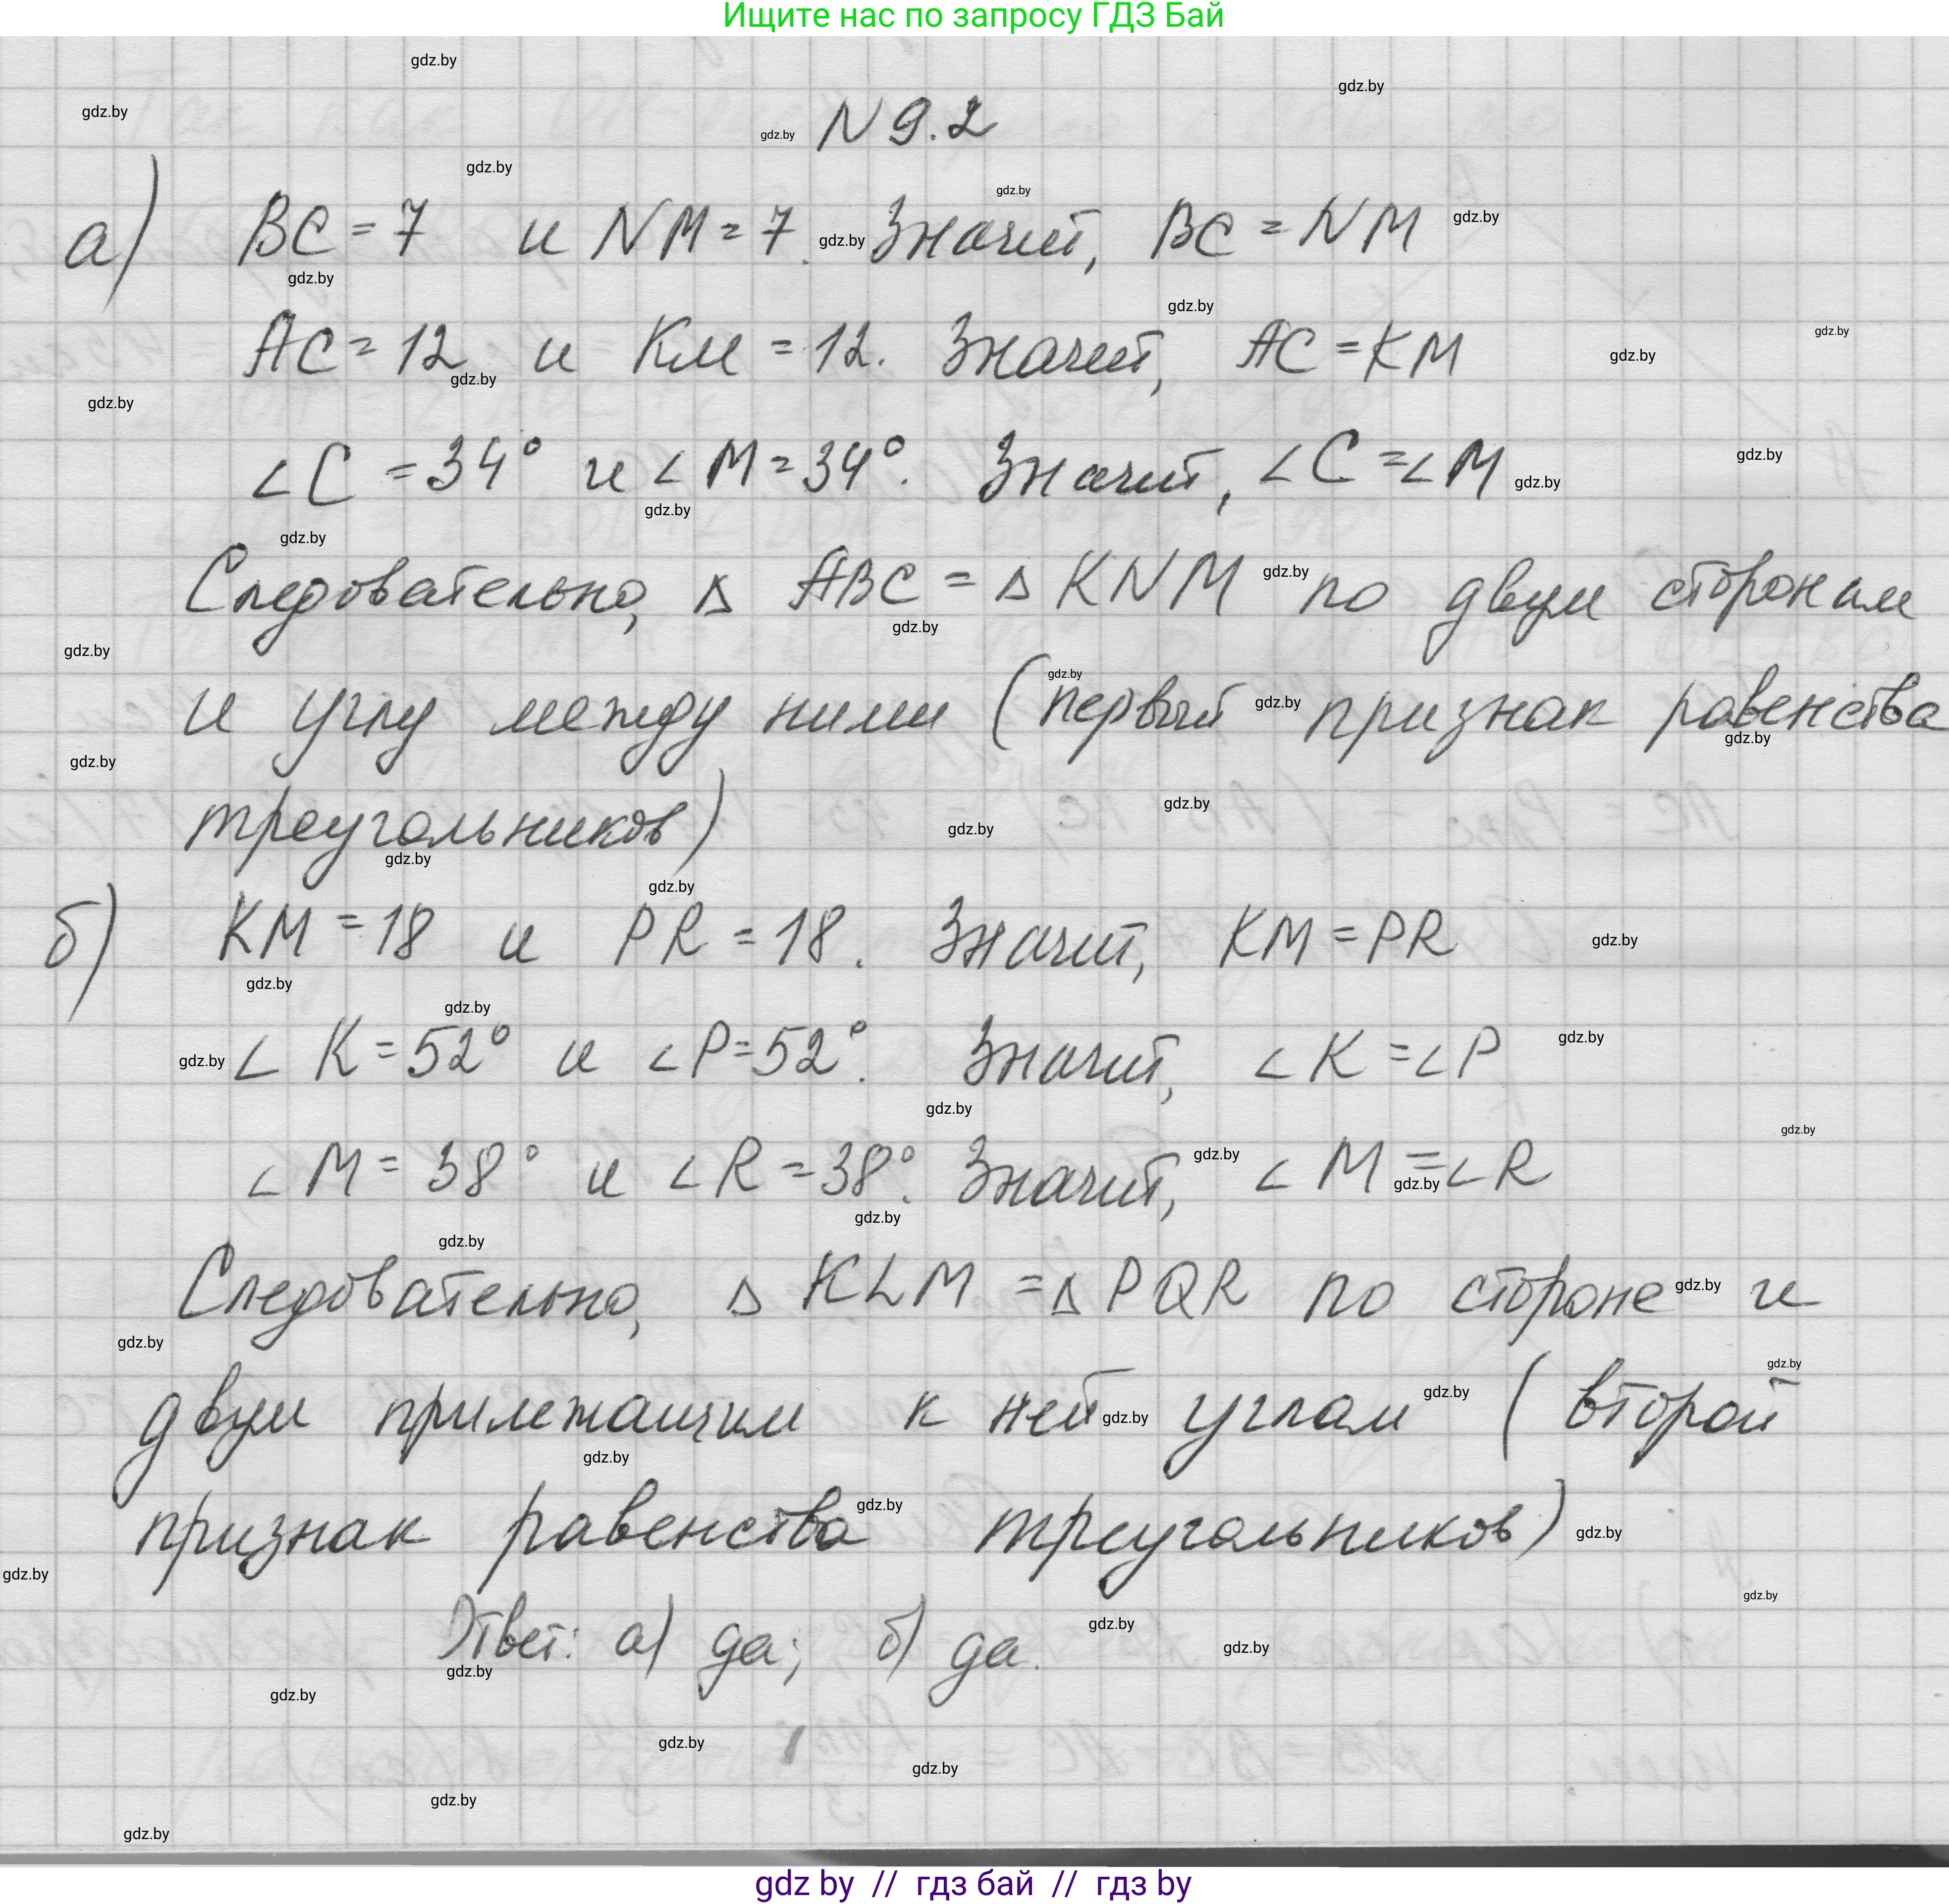 Ищите нас по запросу ГДЗ Бай
N 9.2
а) BC = 7 и NM = 7. Значит, BC = NM
AC = 12 и KM = 12. Значит, AC = KM
∠C = 34° и ∠M = 34°. Значит, ∠C = ∠M
Следовательно, Δ ABC = Δ KNM по двум сторонам
и углу между ними (первый признак равенства
треугольников)
б) KM = 18 и PR = 18. Значит, KM = PR
∠K = 52° и ∠P = 52°. Значит, ∠K = ∠P
∠M = 38° и ∠R = 38°. Значит, ∠M = ∠R
Следовательно, Δ KLM = Δ PQR по стороне и
двум прилежащим к ней углам (второй
признак равенства треугольников)
Ответ: а) да; б) да.
gdz by // гдз бай // гдз by